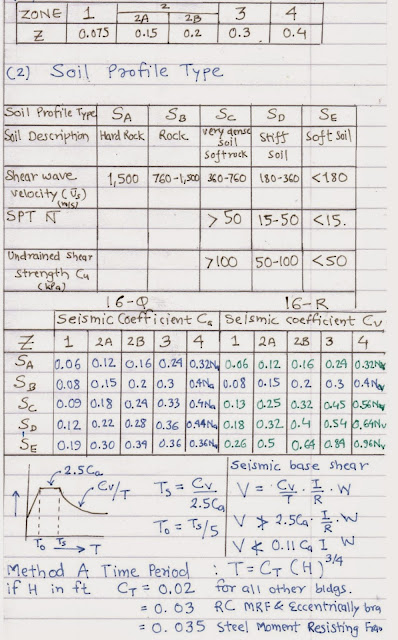 ZONE 1 2 3 4
2A 2B
Z 0.075 0.15 0.2 0.3 0.4
(2) Soil Profile Type
Soil Profile Type SA SB SC SD SE
Soil Description Hard Rock Rock very dense soil soft rock Stiff Soil Soft Soil
Shear wave velocity (v̄s) (m/s) 1,500 760-1,500 360-760 180-360 <180
SPT N̄ >50 15-50 <15.
Undrained Shear strength Cu (kPa) >100 50-100 <50
16-Q 16-R
Seismic Coefficient Ca Seismic coefficient Cv
Z 1 2A 2B 3 4 1 2A 2B 3 4
SA 0.06 0.12 0.16 0.24 0.32Na 0.06 0.12 0.16 0.24 0.32Nv
SB 0.08 0.15 0.2 0.3 0.4Na 0.08 0.15 0.2 0.3 0.4Nv
SC 0.09 0.18 0.24 0.33 0.4Na 0.13 0.25 0.32 0.45 0.56Nv
SD 0.12 0.22 0.28 0.36 0.44Na 0.18 0.32 0.4 0.54 0.64Nv
SE 0.19 0.30 0.34 0.36 0.36Na 0.26 0.5 0.64 0.84 0.96Nv
2.5Ca
Cv/T
To Ts → T
Ts = Cv/2.5Ca
To = Ts/5
Seismic base shear
V = Cv/T · I/R · W
V ≯ 2.5Ca · I/R · W
V ≮ 0.11 Ca I W
Method A Time Period : T = CT (H)^3/4
if H in ft CT = 0.02 for all other bldgs.
= 0.03 RC MRF & Eccentrically bra
= 0.035 Steel Moment Resisting